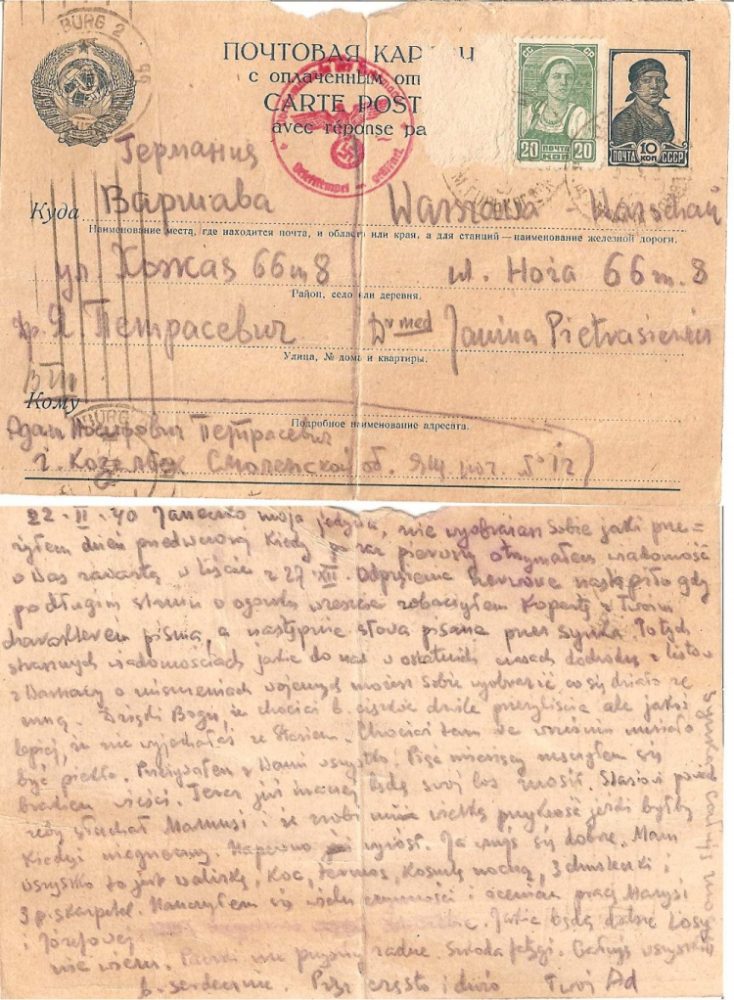 BURG 2
ПОЧТОВАЯ КАР
с оплаченным от
CARTE POST
avec réponse pa
20 ПОЧТА КОП. 20
ПОЧТА 10 КОП. СССР
Германия
Куда Варшава Warszawa - Warschau
Наименование места, где находится почта, и области или края, а для станций—наименование железной дороги.
ул. Хожая 66 m 8 ul. Hoża 66 m. 8
Район, село или деревня.
Др. Я. Петрасевич Dr med Janina Pietrasiewicz
Улица, № дома и квартиры.
Кому
Подробное наименование адресата.
Адам Петрасевич
г. Козельск Смоленской об. ящ. поч. № 12
22-II-40 Janeczko moja jedyna, nie wyobrażasz sobie jaki prze=
żyłem dzień przedwczoraj kiedy po raz pierwszy otrzymałem wiadomość
o Was zawartą w liście z 27.XII. Odprężenie nerwowe nastąpiło gdy
po długim staniu w ogonku wreszcie zobaczyłem kopertę z Twoim
charakterem pisma, a następnie słowa pisane przez synka. Po tych
strasznych wiadomościach jakie do nas w ostatnich czasach dochodzą z listów
z Warszawy o zniszczeniach wojennych możesz sobie wyobrazić co się działo ze
mną. Dzięki Bogu, że chociaż b. ciężkie chwile przeżyliście ale jakoś
lepiej, że nie wyjechałaś ze Stasiem. Chociaż tam we wrześniu musiało
być piekło. Przeżywałem z Wami wszystko. Pięć miesięcy męczyłem się
brakiem wieści. Teraz już inaczej będę swój los znosił. Stasiowi powiedz
żeby słuchał Mamusi i że zrobi mnie wielką przykrość jeżeli byłby
kiedyś niegrzeczny. Napewno wyrósł. Ja czuję się dobrze. Mam
wszystko to jest walizkę, koc, termos, koszulę nocną, 3 chusteczki i
3 p. skarpetek. Nauczyłem się wielu czynności i oceniam pracę Marysi
i Józefowej. Jakie będą dalsze losy
nie wiem. Paczki nie przysyłaj żadnej. Szkoda fatygi. Całuję wszystkich
b. serdecznie. Pisz często i dużo Twój Ad